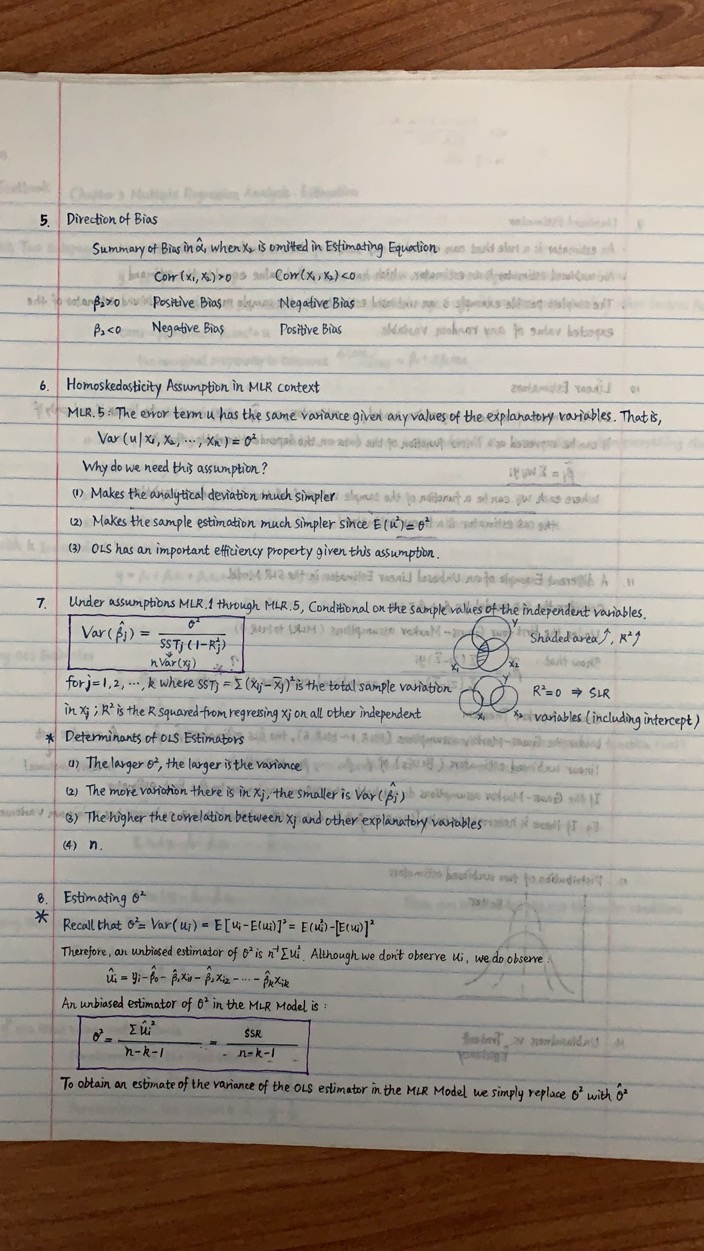 5. Direction of Bias
Summary of Bias in α̂₁ when X₂ is omitted in Estimating Equation
Corr(x₁, x₂)>0 Corr(x₁, x₂)<0
β₂>0 Positive Bias Negative Bias
β₂<0 Negative Bias Positive Bias
6. Homoskedasticity Assumption in MLR context
MLR.5: The error term u has the same variance given any values of the explanatory variables. That is,
Var(u|x₁, x₂, ..., xₙ) = σ²
Why do we need this assumption?
(1) Makes the analytical deviation much simpler
(2) Makes the sample estimation much simpler since E(u²)=σ²
(3) OLS has an important efficiency property given this assumption.
7. Under assumptions MLR.1 through MLR.5, Conditional on the sample values of the independent variables.
Var(β̂j) = σ² / SSTj(1-R²j)
nVar(xj)
* ?
Y
X₁ X₂
Shaded area↑, R²↑
for j=1,2, ..., k where SSTj = Σ(xij-x̄j)² is the total sample variation
Y
X₁ X₂
R²=0 ⇒ SLR
in xj; R² is the R squared from regressing xj on all other independent variables (including intercept)
* Determinants of OLS Estimators
(1) The larger σ², the larger is the variance
(2) The more variation there is in xj, the smaller is Var(β̂j)
(3) The higher the correlation between xj and other explanatory variables
(4) n.
8. Estimating σ²
* Recall that σ²= Var(ui) = E[ui-E(ui)]² = E(ui²)-[E(ui)]²
Therefore, an unbiased estimator of σ² is n⁻¹Σui². Although we don't observe ui, we do observe:
ûi = yi-β̂₀-β̂₁xi1-β̂₂xi2-...-β̂kxik
An unbiased estimator of σ² in the MLR Model is:
σ² = Σûi² / n-k-1 = SSR / n-k-1
To obtain an estimate of the variance of the OLS estimator in the MLR Model we simply replace σ² with σ̂²